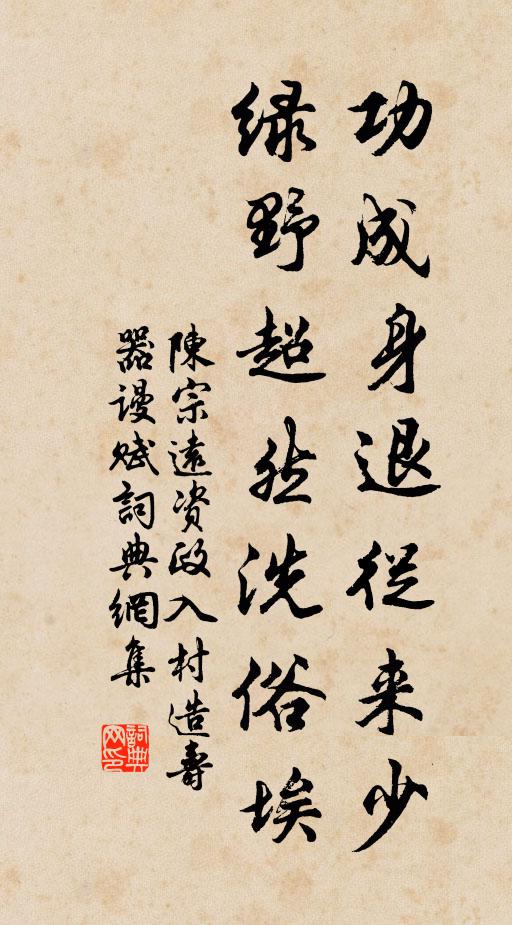 功成身退從来少
绿野超然洗俗埃
陳宗遠資政入村造壽
器謾赋詞典網集
詞典
网印